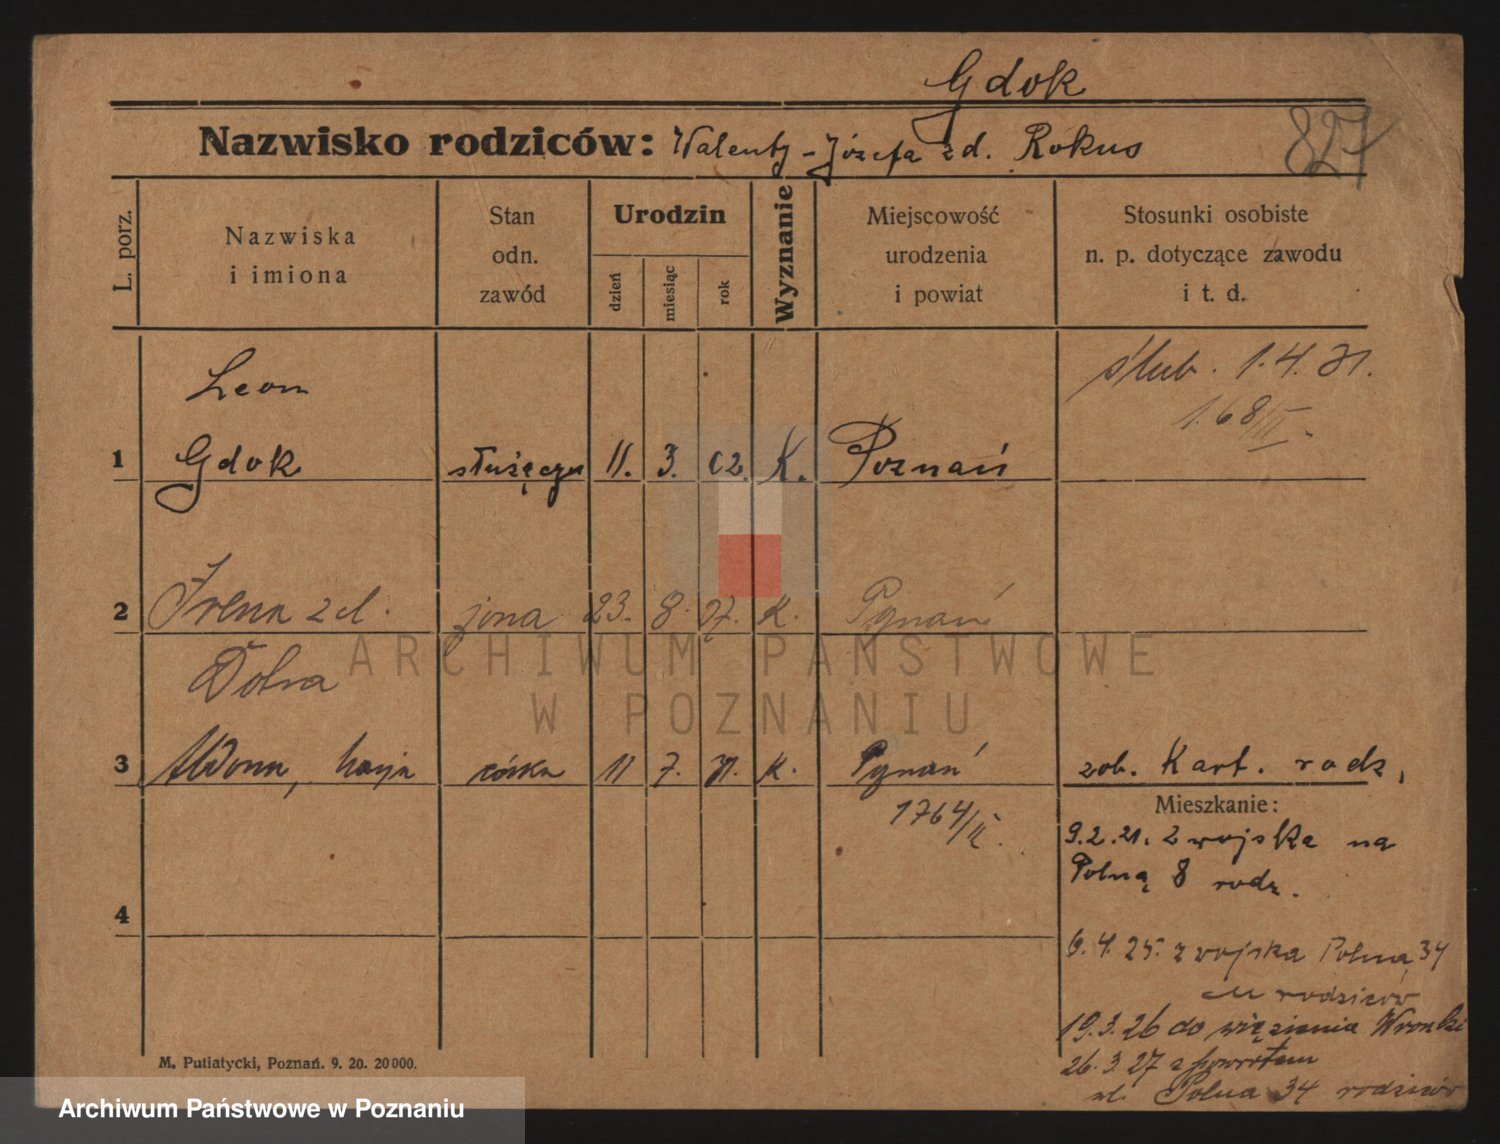 Gdok
827
Nazwisko rodziców: Walenty - Józefa zd. Rokus
L. porz.
Nazwiska
i imiona
Stan
odn.
zawód
Urodzin
dzień
miesiąc
rok
Wyznanie
Miejscowość
urodzenia
i powiat
Stosunki osobiste
n. p. dotyczące zawodu
i t. d.
Leon
ślub. 1.4.31.
168/II.
1 Gdok służący 11. 3. 02. K. Poznań
2 Irena zd. żona 23. 8. 07. K. Poznań
Dolna
ARCHIWUM PAŃSTWOWE
W POZNANIU
3 Maria córka 11 7. 31. K. Poznań zob. Kart. rodz.
1764/II.
Mieszkanie:
9.2.21. z wojska na
Polną 8 rodz.
4
6.4.25. z wojska Polna 34
u rodziców
19.3.26 do więzienia Wronki
26.3.27 z powrotem
ul. Polna 34 rodziców
M. Putiatycki, Poznań. 9. 20. 20 000.
Archiwum Państwowe w Poznaniu